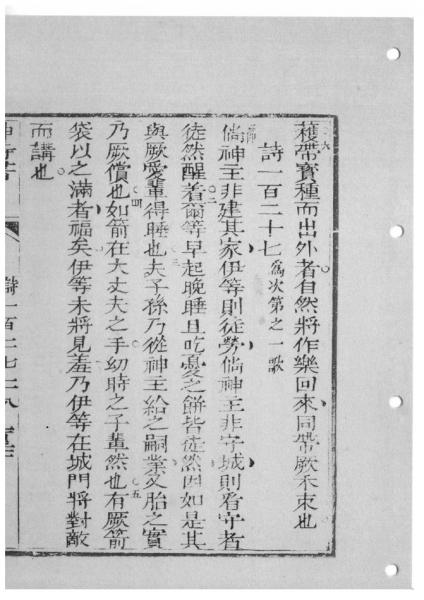 六
穫帶寶種而出外者自然將作樂回來同帶厥禾束也
詩一百二十七 為次第之一歌
一節
倘神主非建其家伊等則徒勞倘神主非守城則看守者
徒然醒着二爾等早起晚睡且吃憂之餅皆徒然因如是其
與厥愛輩得睡也三夫子孫乃從神主給之嗣業又胎之實
乃厥償也四如箭在大丈夫之手幼時之子輩然也五有厥箭
袋以之滿者福矣伊等未將見羞乃伊等在城門將對敵
而講也